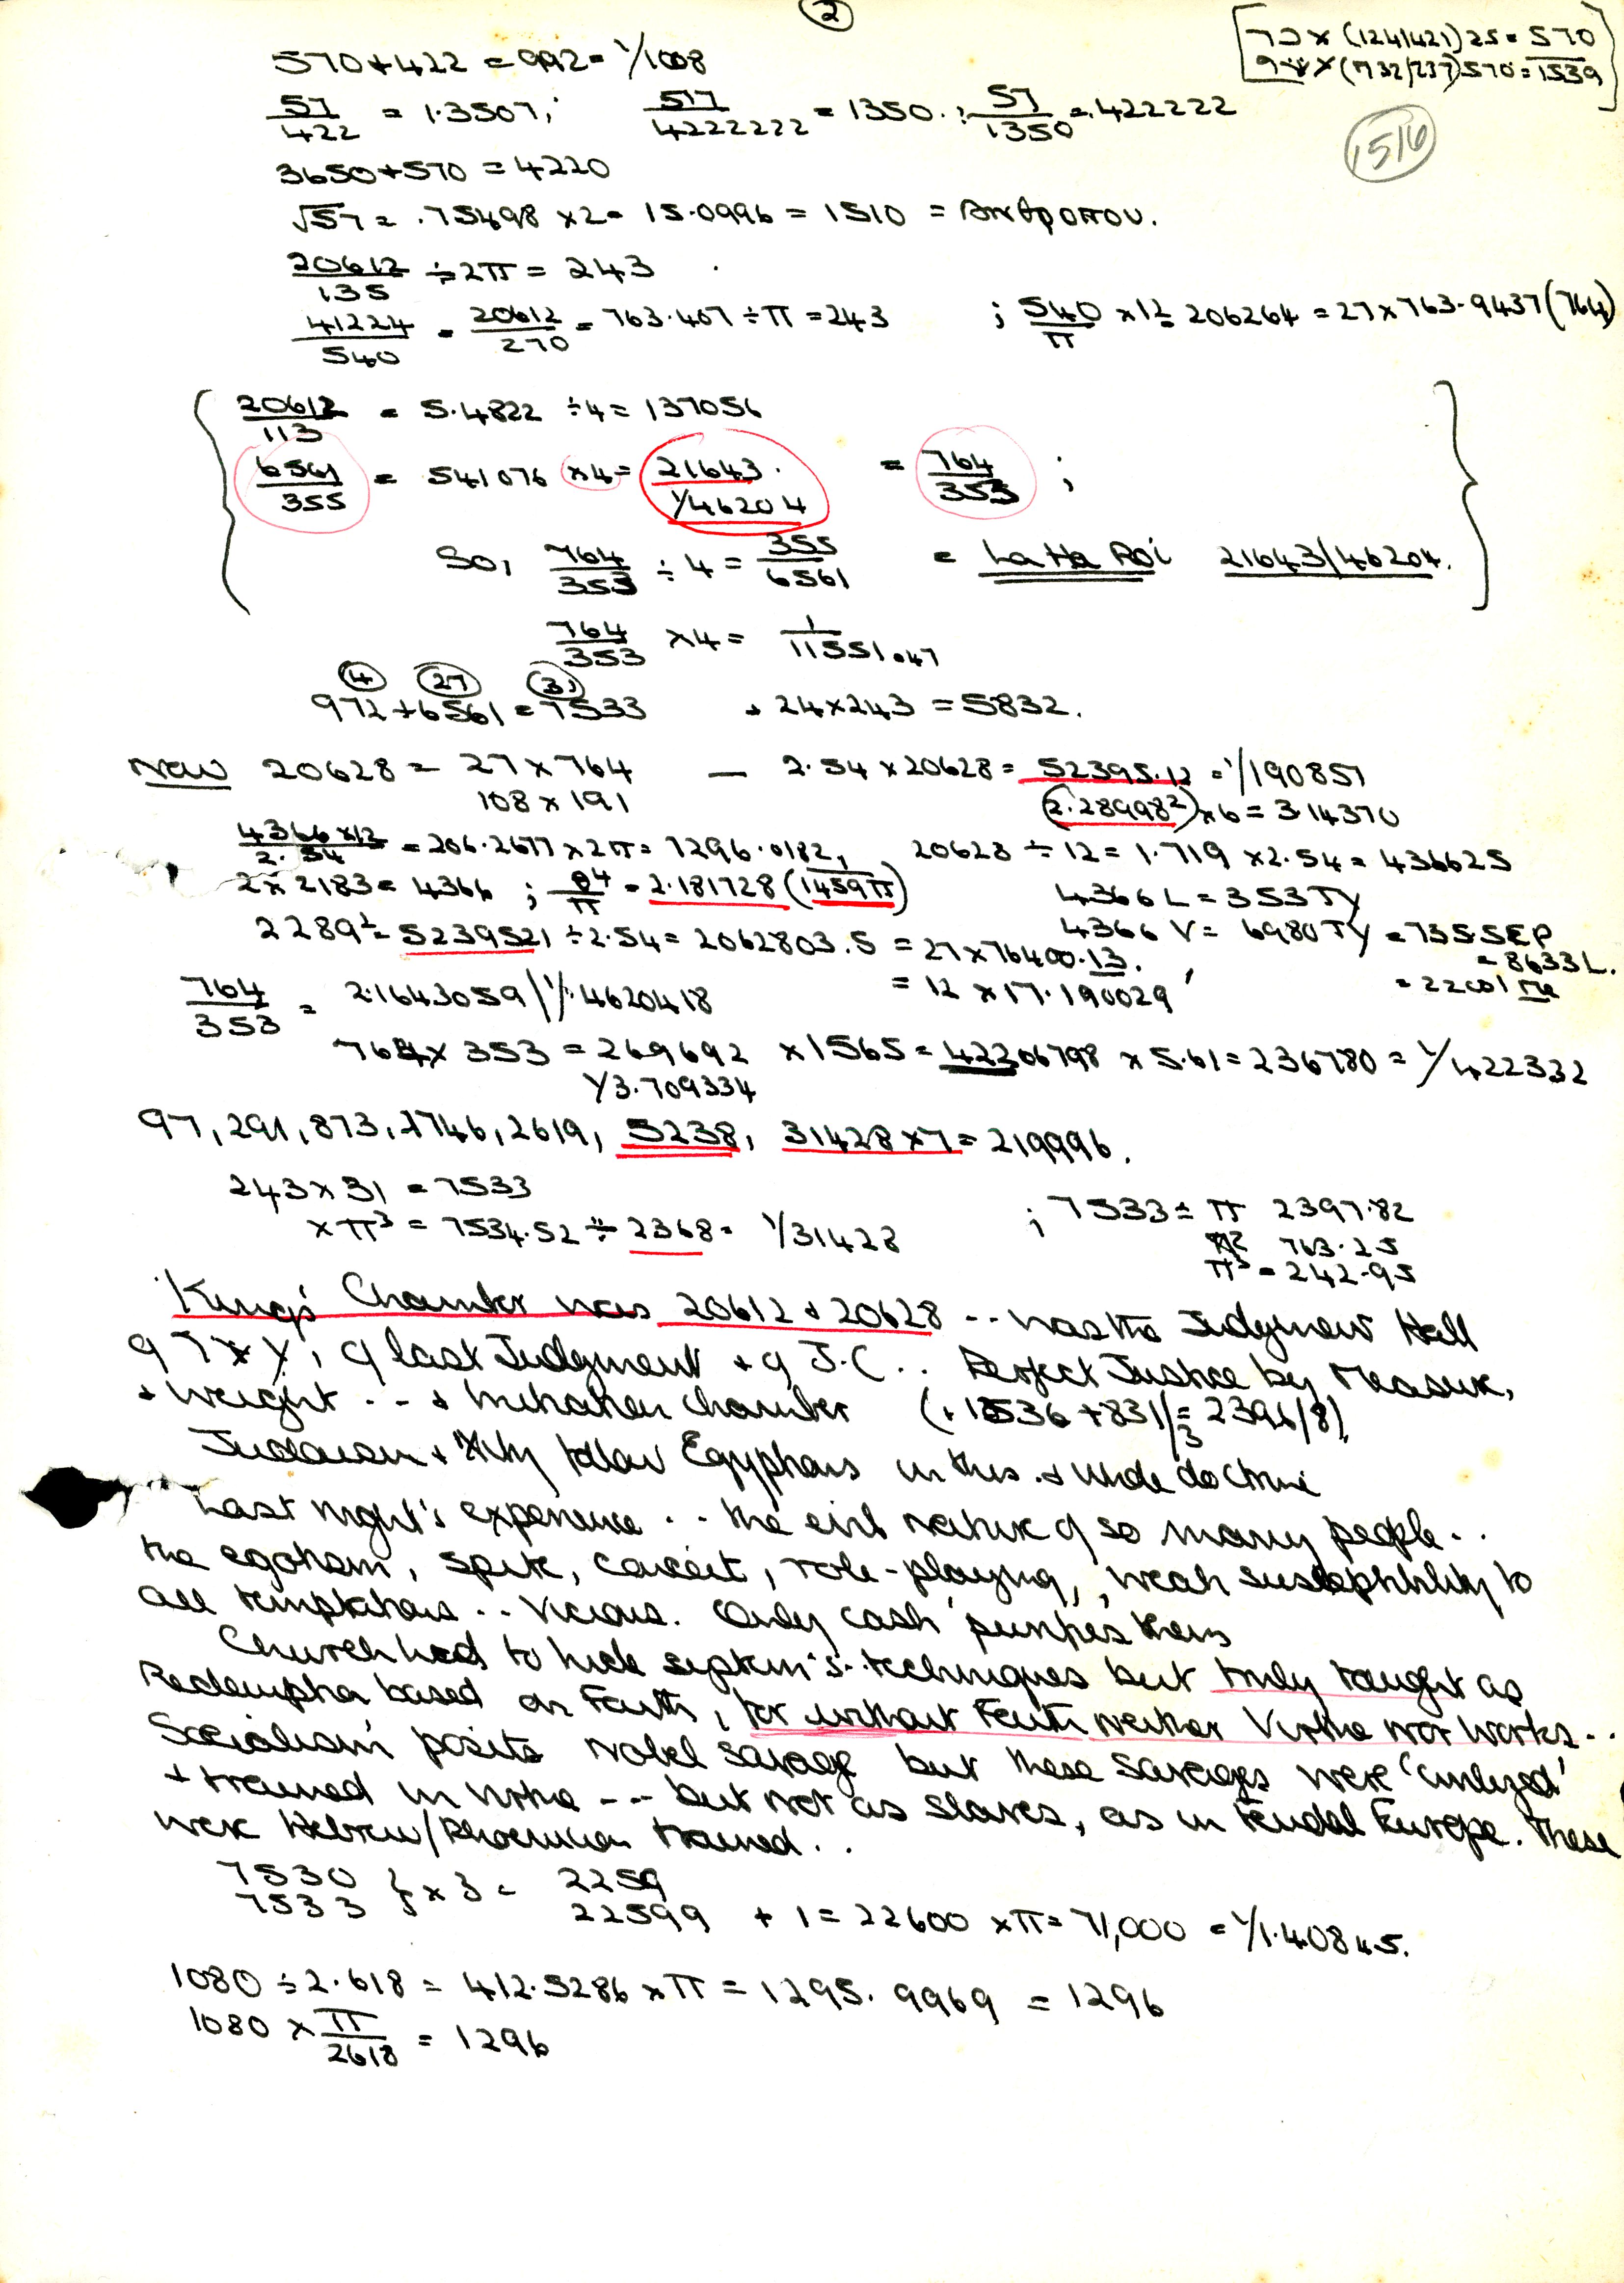 2
[ 70 x (1241421) 25 = 570
9 x (732/237) 570 = 1539 ]
1516
570 + 422 = 992 = 1/1008
57/422 = 1.3507; 517/4222222 = 1350. ; 57/1350 = .422222
3650 + 570 = 4220
√57 = .75498 x 2 = 15.0996 = 1510 =
20612/135 ÷ 2π = 243
41224/540 = 20612/270 = 763.407 ÷ π = 243 ; 540/π x 12 = 206264 = 27 x 763.9437 (764)
20612/113 = 5.4822 ÷ 4 = 137056
6561/355 = 541076 x 4 = 21643. 1/46204 = 764/353 ;
So, 764/353 ÷ 4 = 355/6561 = 21643/46204.
764/353 x 4 = 1/11551.47
4 27 31
972 + 6561 = 7533 + 24 x 243 = 5832.
Now 20628 = 27 x 764 — 2.54 x 20628 = 52395.12 = 1/190857
108 x 191 (2.28998²) x 6 = 3.14370
4366 x 12/2.54 = 206.2677 x 2π = 1296.0182, 20628 ÷ 12 = 1.719 x 2.54 = 436625
2 x 2183 = 4366 ; θ⁴/π = 2.181728 (1459π) 4366 L = 353 TY
2289² = 5239521 ÷ 2.54 = 2062803.5 = 27 x 76400.13. 4366 V = 6980 TY = 735.5 SEP
= 8633 L.
= 12 x 17.190029
764/353 = 2.1643059 | 1/.4620418
764 x 353 = 269692 x 1565 = 42206798 x 5.61 = 236780 = 1/422332
1/3.709334
97, 291, 873, 1746, 2619, 5238, 31428 x 7 = 219996.
243 x 31 = 7533 ; 7533 ÷ π 2397.82
x π³ = 7534.52 ÷ 2368 = 1/31428 π² 763.25
π³ = 242.95
King's Chamber was 20612 & 20628 .. was the Judgment Hall
9 TxY, 9 last Judgment + 9 J.C .. Perfect Justice by Measure,
+ weight .. + Initiation chamber
+ Xity follow Egyptians in this . & whole doctrine
Last night's experience .. the evil nature of so many people ..
the egotism, spite, conceit, role-playing, weak susceptibility to
all temptations .. Vicious. Only cash punishes them
Church had to hide techniques but truly taught as
Redemption based on Faith, for without Faith neither Virtue nor Works ..
Socialism posits nobel savage but these savages were 'civilized'
+ trained in virtue -- but not as slaves, as in Feudal Europe. These
were Hebrew/Phoenician trained ..
7530 } x 3 = 2259
7533 22599 + 1 = 22600 x π = 71,000 = 1/1.40845.
1080 ÷ 2.618 = 412.5286 x π = 1295.9969 = 1296
1080 x π/2618 = 1296